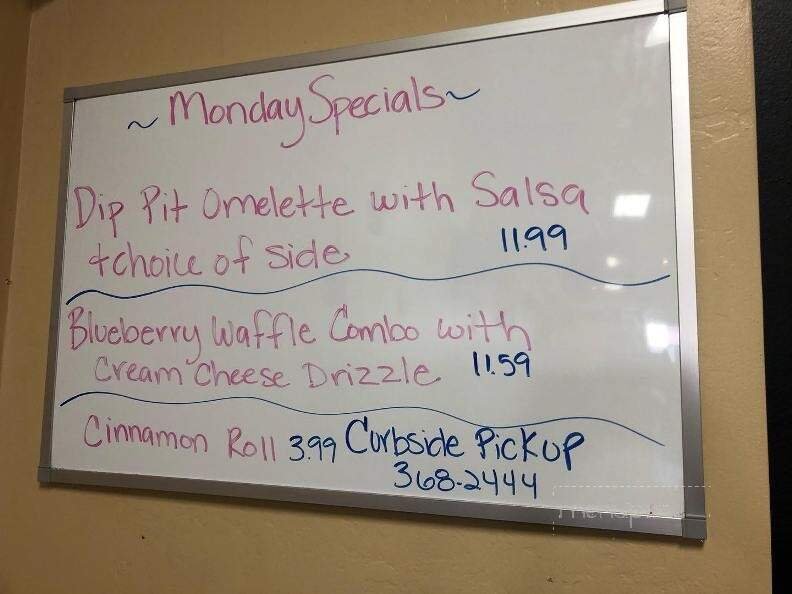 ~ Monday Specials ~
Dip Pit Omelette with Salsa
+ choice of side 11.99
Blueberry Waffle Combo with
Cream Cheese Drizzle 11.59
Cinnamon Roll 3.99 Curbside Pickup
368-2444